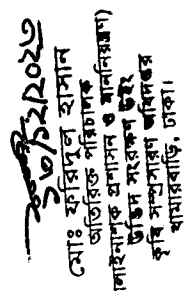 ১৩/১২/২০২৩
মোঃ ফরিদুল হাসান
অতিরিক্ত পরিচালক
(বালাইনাশক প্রশাসন ও মাননিয়ন্ত্রণ)
উদ্ভিদ সংরক্ষণ উইং
কৃষি সম্প্রসারণ অধিদপ্তর
খামারবাড়ি, ঢাকা।